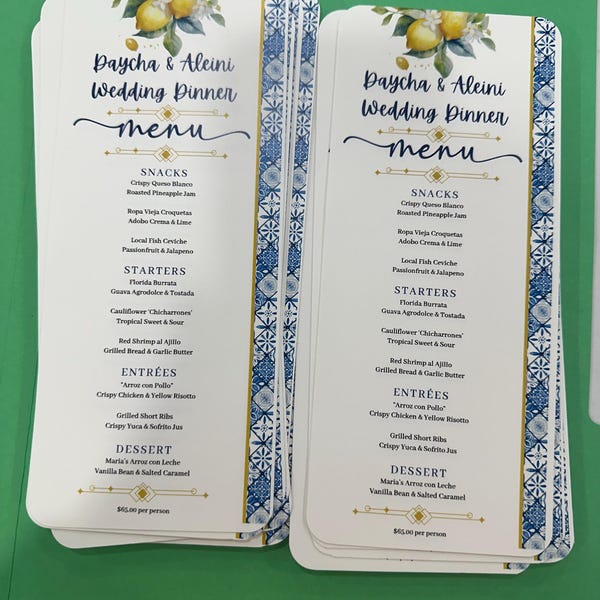 Daycha & Aleini
Wedding Dinner
menu
SNACKS
Crispy Queso Blanco
Roasted Pineapple Jam
Ropa Vieja Croquetas
Adobo Crema & Lime
Local Fish Ceviche
Passionfruit & Jalapeno
STARTERS
Florida Burrata
Guava Agrodolce & Tostada
Cauliflower 'Chicharrones'
Tropical Sweet & Sour
Red Shrimp al Ajillo
Grilled Bread & Garlic Butter
ENTRÉES
"Arroz con Pollo"
Crispy Chicken & Yellow Risotto
Grilled Short Ribs
Crispy Yuca & Sofrito Jus
DESSERT
Maria's Arroz con Leche
Vanilla Bean & Salted Caramel
$65.00 per person
Daycha & Aleini
Wedding Dinner
menu
SNACKS
Crispy Queso Blanco
Roasted Pineapple Jam
Ropa Vieja Croquetas
Adobo Crema & Lime
Local Fish Ceviche
Passionfruit & Jalapeno
STARTERS
Florida Burrata
Guava Agrodolce & Tostada
Cauliflower 'Chicharrones'
Tropical Sweet & Sour
Red Shrimp al Ajillo
Grilled Bread & Garlic Butter
ENTRÉES
"Arroz con Pollo"
Crispy Chicken & Yellow Risotto
Grilled Short Ribs
Crispy Yuca & Sofrito Jus
DESSERT
Maria's Arroz con Leche
Vanilla Bean & Salted Caramel
$65.00 per person